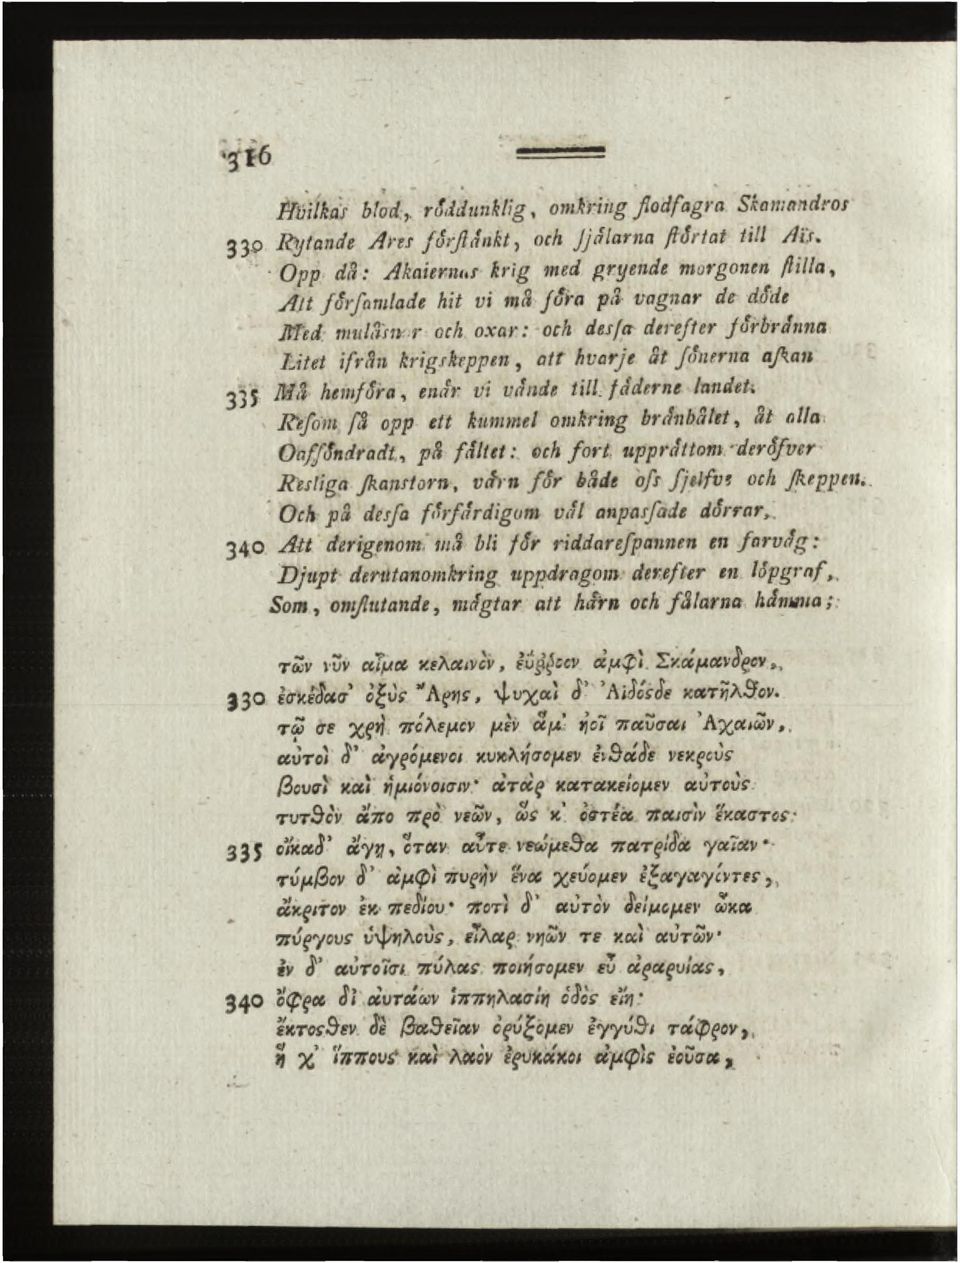 316
Hvilkas blod, röddunklig, omkring flodfagra Skamandros
330 Rytande Ares förstänkt, och själarna störtat till Aïs.
Opp då: Akaiernas krig med gryende morgonen stilla,
Alt församlade hit vi må föra på vagnar de döde
Med mulåsnor och oxar: och dessa derefter förbränna
Litet ifrån krigskeppen, att hvarje åt sönerna askan
335 Må hemföra, enär vi vände till fäderne landet.
Resom så opp ett kummel omkring brånbålet, åt alla
Oafsöndradt, på fältet: och fort upprättom deröfver
Resliga skanstorn, värn för både oss sjelfve och skeppen.
Och på dessa förfärdigom väl anpassade dörrar,
340 Att derigenom må bli för riddarespannen en farväg:
Djupt derutanomkring uppdragom derefter en löpgraf,
Som, omslutande, mägtar att härn och fålarna hämma;
τῶν νῦν αἷμα κελαινὸν, ἐΰῤῥοον ἀμφὶ Σκάμανδρον,
330 ἐσκέδασ' ὀξὺς Ἄρης, ψυχαὶ δ' Ἀϊδόσδε κατῆλθον.
τῷ σε χρὴ πόλεμον μὲν ἅμ' ἠοῖ παῦσαι Ἀχαιῶν,
αὐτοὶ δ' ἀγρόμενοι κυκλήσομεν ἐνθάδε νεκροὺς
βουσὶ καὶ ἡμιόνοισιν· ἀτὰρ κατακείομεν αὐτοὺς
τυτθὸν ἄπο πρὸ νεῶν, ὥς κ' ὀστέα παισὶν ἕκαστος
335 οἴκαδ' ἄγῃ, ὅταν αὖτε νεώμεθα πατρίδα γαῖαν·
τύμβον δ' ἀμφὶ πυρὴν ἕνα χεύομεν ἐξαγαγόντες,
ἄκριτον ἐκ πεδίου· ποτὶ δ' αὐτὸν δείμομεν ὦκα
πύργους ὑψηλοὺς, εἶλαρ νηῶν τε καὶ αὐτῶν·
ἐν δ' αὐτοῖσι πύλας ποιήσομεν εὖ ἀραρυίας,
340 ὄφρα δι' αὐτάων ἱππηλασίη ὁδὸς εἴη·
ἔκτοσθεν δὲ βαθεῖαν ὀρύξομεν ἐγγύθι τάφρον,
ἥ χ' ἵππους καὶ λαὸν ἐρυκάκοι ἀμφὶς ἐοῦσα,